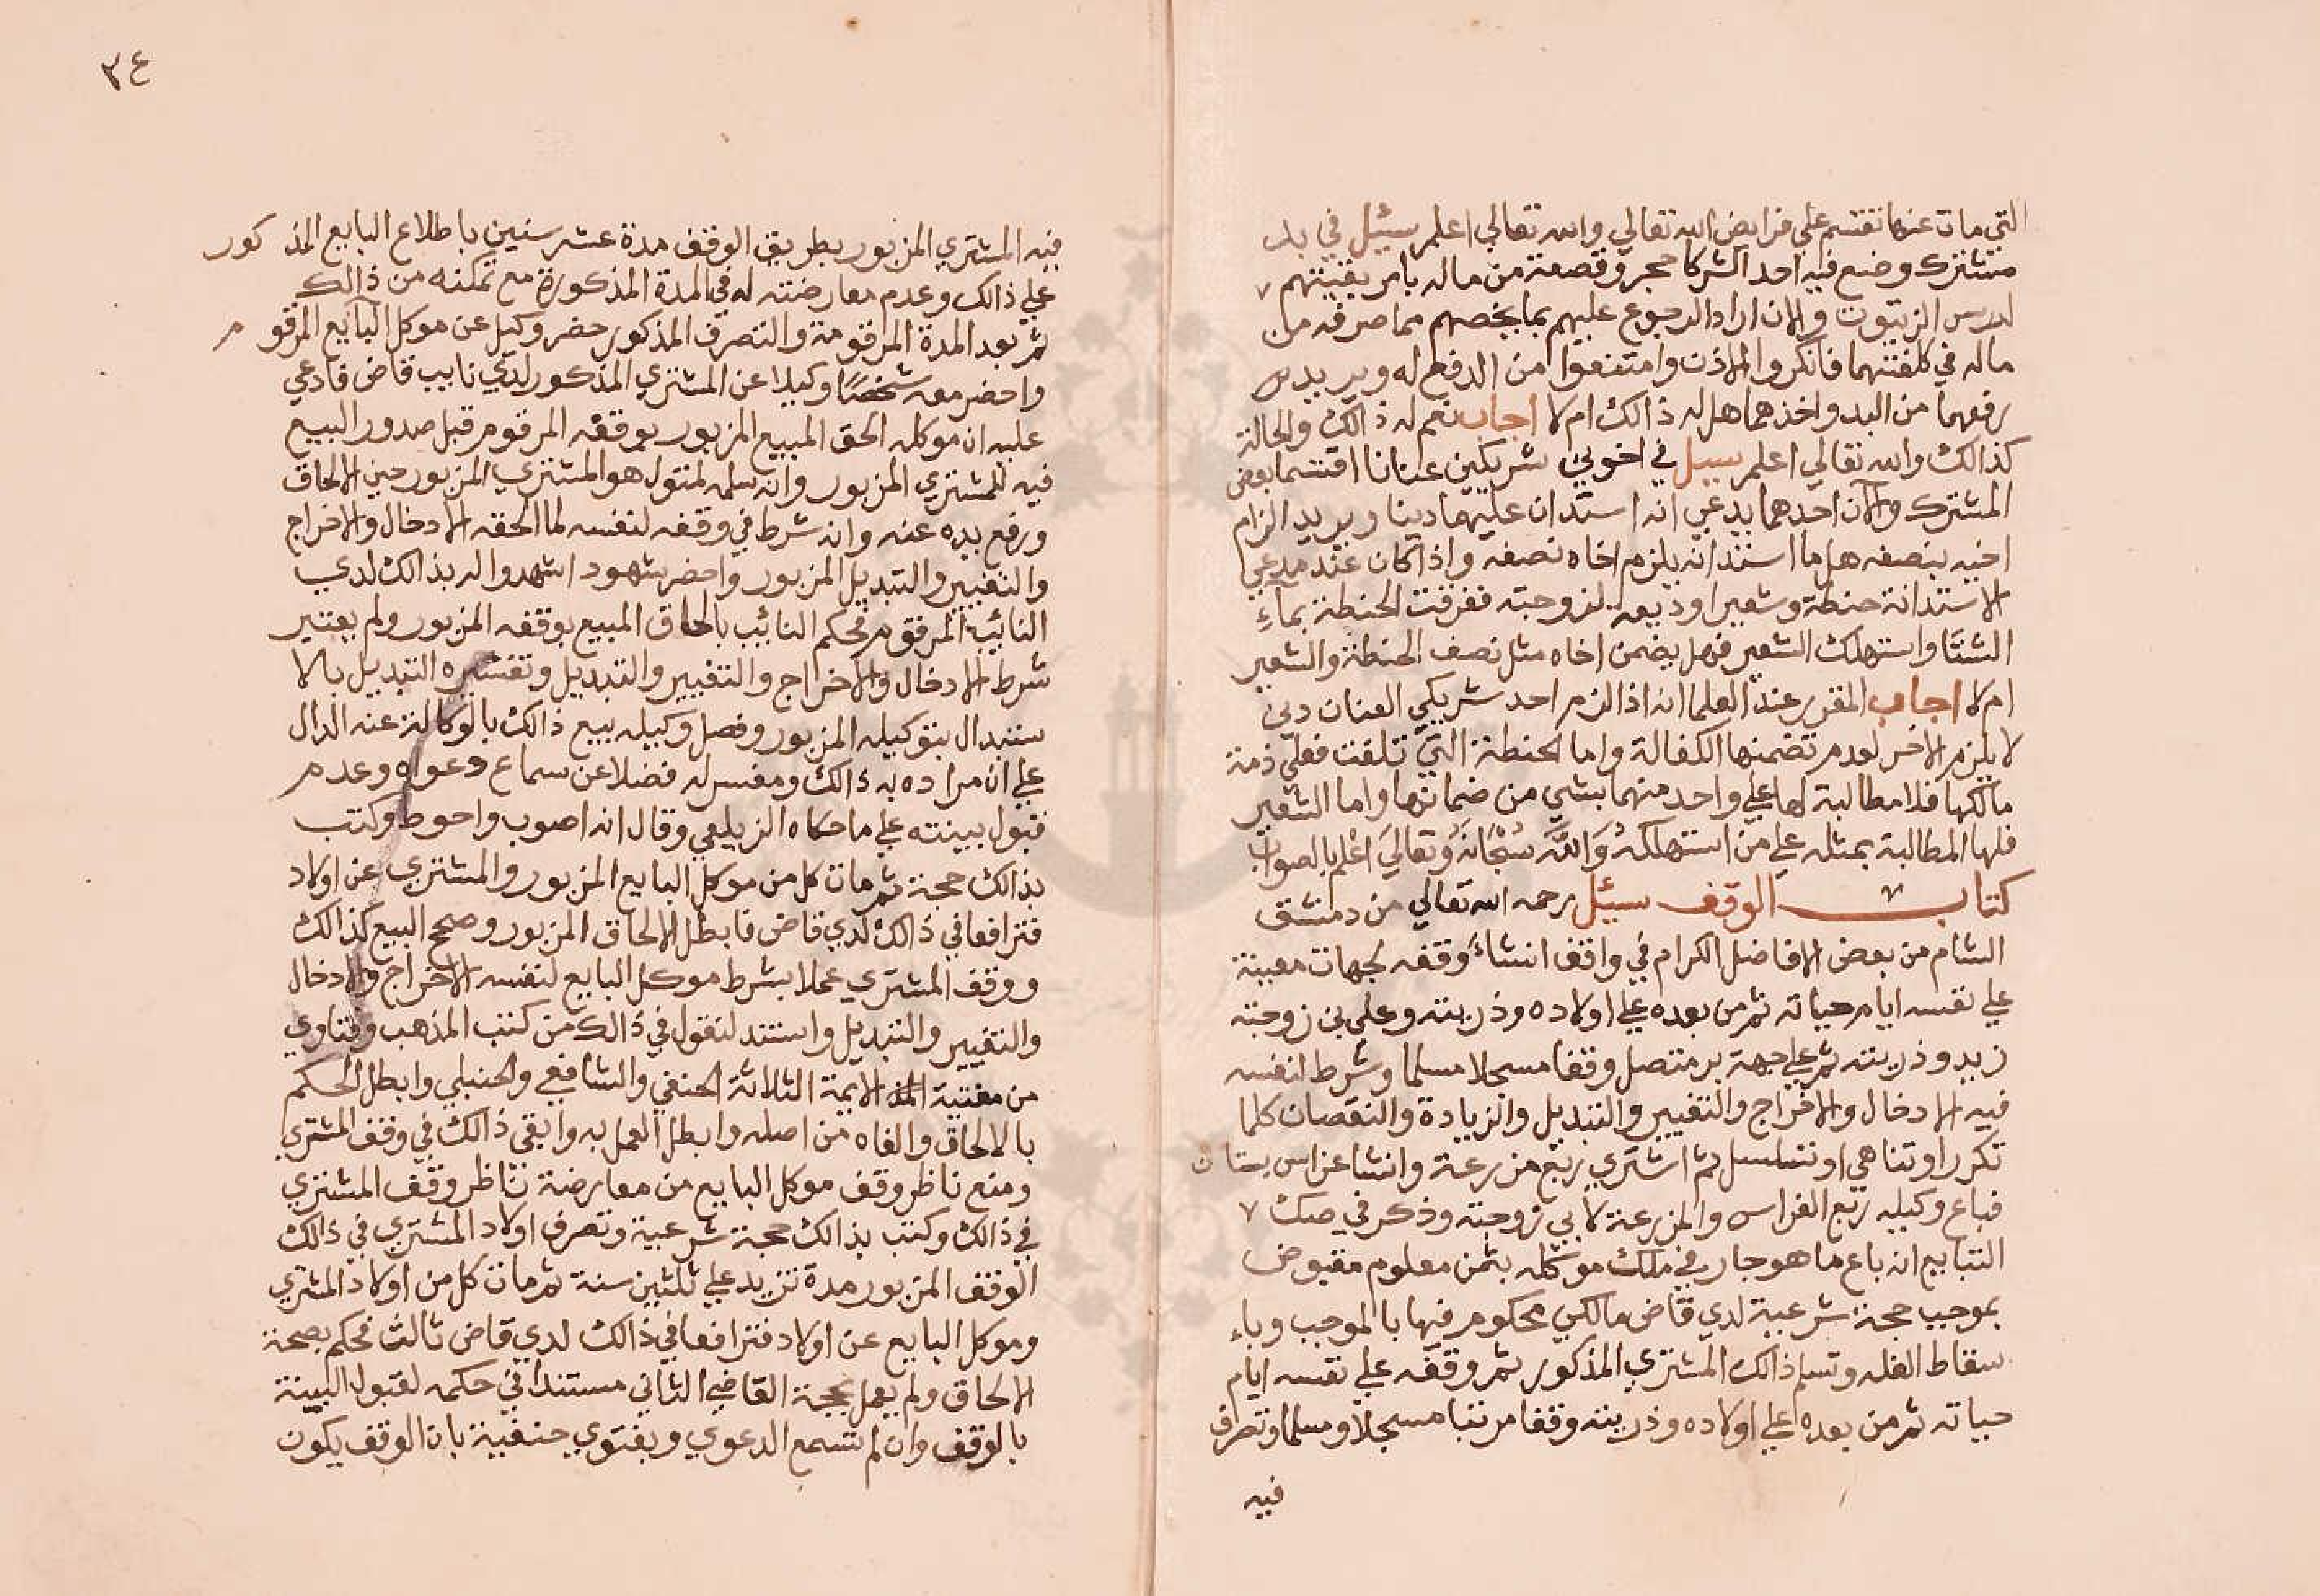 التي مات عنها تقتسم علي فرايض الله تعالي والله تعالي اعلم سئيل في بد
مشترك وضع فيه احد الشركا حجر وقصعة من ماله بامر بقيتهم
لدرس الزيتون والان اراد الرجوع عليهم بما يخصهم مما صرفه من
ماله في كلفتهما فانكروا الاذن وامتنعوا من الدفع له ويريد
رفعهما من البد واخذهما هل له ذالك ام لا اجاب نعم له ذالك والحالة
كذالك والله تعالي اعلم سيل في اخوين شريكين عنانا اقتسما بعض
المشترك والآن احدهما يدعي انه استدان عليهما دينا ويريد الزام
اخيه بنصفه هل ما استدانه يلزم اخاه نصفه واذا كان عند مدعي
الاستدانة حنطة وشعير اوديعه لزوجته فغرقت الحنطة بماء
الشتا واستهلك الشعير فهل يضمن اخاه مثل نصف الحنطة والشعير
ام لا اجاب المقرر عند العلما انه اذا لزم احد شريكي العنان دين
لا يلزم الاخر لعدم تضمنها الكفالة واما الحنطة التي تلفت فعلي ذمة
مالكها فلا مطالبة لها علي واحد منهما بشي من ضمانها واما الشعير
فلها المطالبة بمثله علي من استهلكه والله سبحانه وتعالي اعلم بالصواب
كتاب الوقف سيئل رحمه الله تعالي من دمشق
الشام من بعض الافاضل الكرام في واقف انشاء وقفه لجهات معينة
علي نفسه ايام حياته ثم من بعده علي اولاده وذريته وعلي بن زوجته
زيد وذريته ثم علي جهة بر متصل وقفا مسجلا مسلما وشرط لنفسه
فيه الادخال والاخراج والتغيير والتبديل والزيادة والنقصان كلما
تكرر او تناهي او تسلسل ثم اشتري ربع مزرعة وانشا غراس بستان
فباع وكيله ربع الغراس والمزرعة لابي زوجته وذكر في صك
التبايع انه باع ما هو جار في ملك موكله بثمن معلوم مقبوض
بموجب حجة شرعية لدي قاض مالكي محكوم فيها بالموجب وباء
سقاط الغله وتسلم ذالك المشتري المذكور ثم وقفه علي نفسه ايام
حياته ثم من بعده علي اولاده وذريته وقفا مرتبا مسجلا ومسلما وتصرف
فيه
٣٤
فيه المشتري المزبور بطريق الوقف مدة عشر سنين باطلاع البايع المذ كور
علي ذالك وعدم معارضته له في المدة المذكورة مع تمكنه من ذالك
ثم بعد المدة المرقومة والتصرف المذكور حضر وكيل عن موكل البايع المرقو م
واحضر معه شخصا وكيلا عن المشتري المذكور لدي نايب قاض فادعي
عليه ان موكله الحق المبيع المزبور بوقفه المرقوم قبل صدور البيع
فيه للمشتري المزبور وانه سلمه لمتول هو المشتري المزبور حين الالحاق
ورفع يده عنه وانه شرط في وقفه لنفسه لما الحقه الادخال والاخراج
والتغيير والتبديل المزبور واحضر شهود اشهدوا له بذالك لدي
النائب المرقوم فحكم النائب بالحاق المبيع بوقفه المزبور ولم يعتبر
شرط الادخال والاخراج والتغيير والتبديل وتفسيره التبديل بالا
ستبدال بتوكيله المزبور وفصل وكيله ببيع ذالك بالوكالة عنه الدال
علي ان مراده به ذالك ومفسر له فضلا عن سماع دعواه وعدم
قبول بينته علي ما حكاه الزيلعي وقال انه اصوب واحوط وكتب
بذالك حجة ثم مات كل من موكل البايع المزبور والمشتري عن اولاد
فترافعا في ذالك لدي قاض فابطل الالحاق المزبور وصحح البيع كذالك
ووقف المشتري عملا بشرط موكل البايع لنفسه الاخراج والادخال
والتغيير والتبديل واستند لنقول في ذالك من كتب المذهب وفتاوي
من مفتية الايمة الثلاثة الحنفي والشافعي والحنبلي وابطل الحكم
بالالحاق والغاه من اصله وابطل العمل به وابقي ذالك في وقف المشتري
ومنع ناظر وقف موكل البايع من معارضة ناظر وقف المشتري
في ذالك وكتب بذالك حجة شرعية وتصرف اولاد المشتري في ذالك
الوقف المزبور مدة تزيد علي ثلثين سنة ثم مات كل من اولاد المشتري
وموكل البايع عن اولاد فترافعا في ذالك لدي قاض ثالث فحكم بصحة
الالحاق ولم يعمل بحجة القاضي الثاني مستندا في حكمه لقبول البينة
بالوقف وان لم تسمع الدعوي وبفتوي حنفية بان الوقف يكون